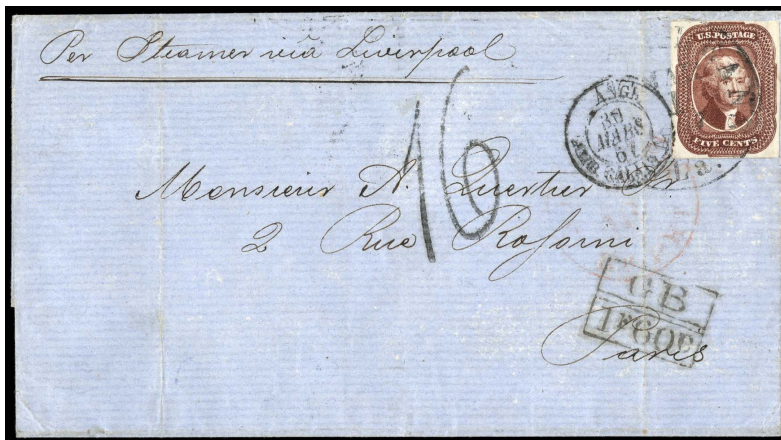 Per Steamer via Liverpool
U.S. POSTAGE
FIVE CENTS
ANGL.
30
MARS
61
AMB. CALAIS
16
Monsieur A. Quertier Jr
2 Rue Rossini
GB
1F60C
Paris